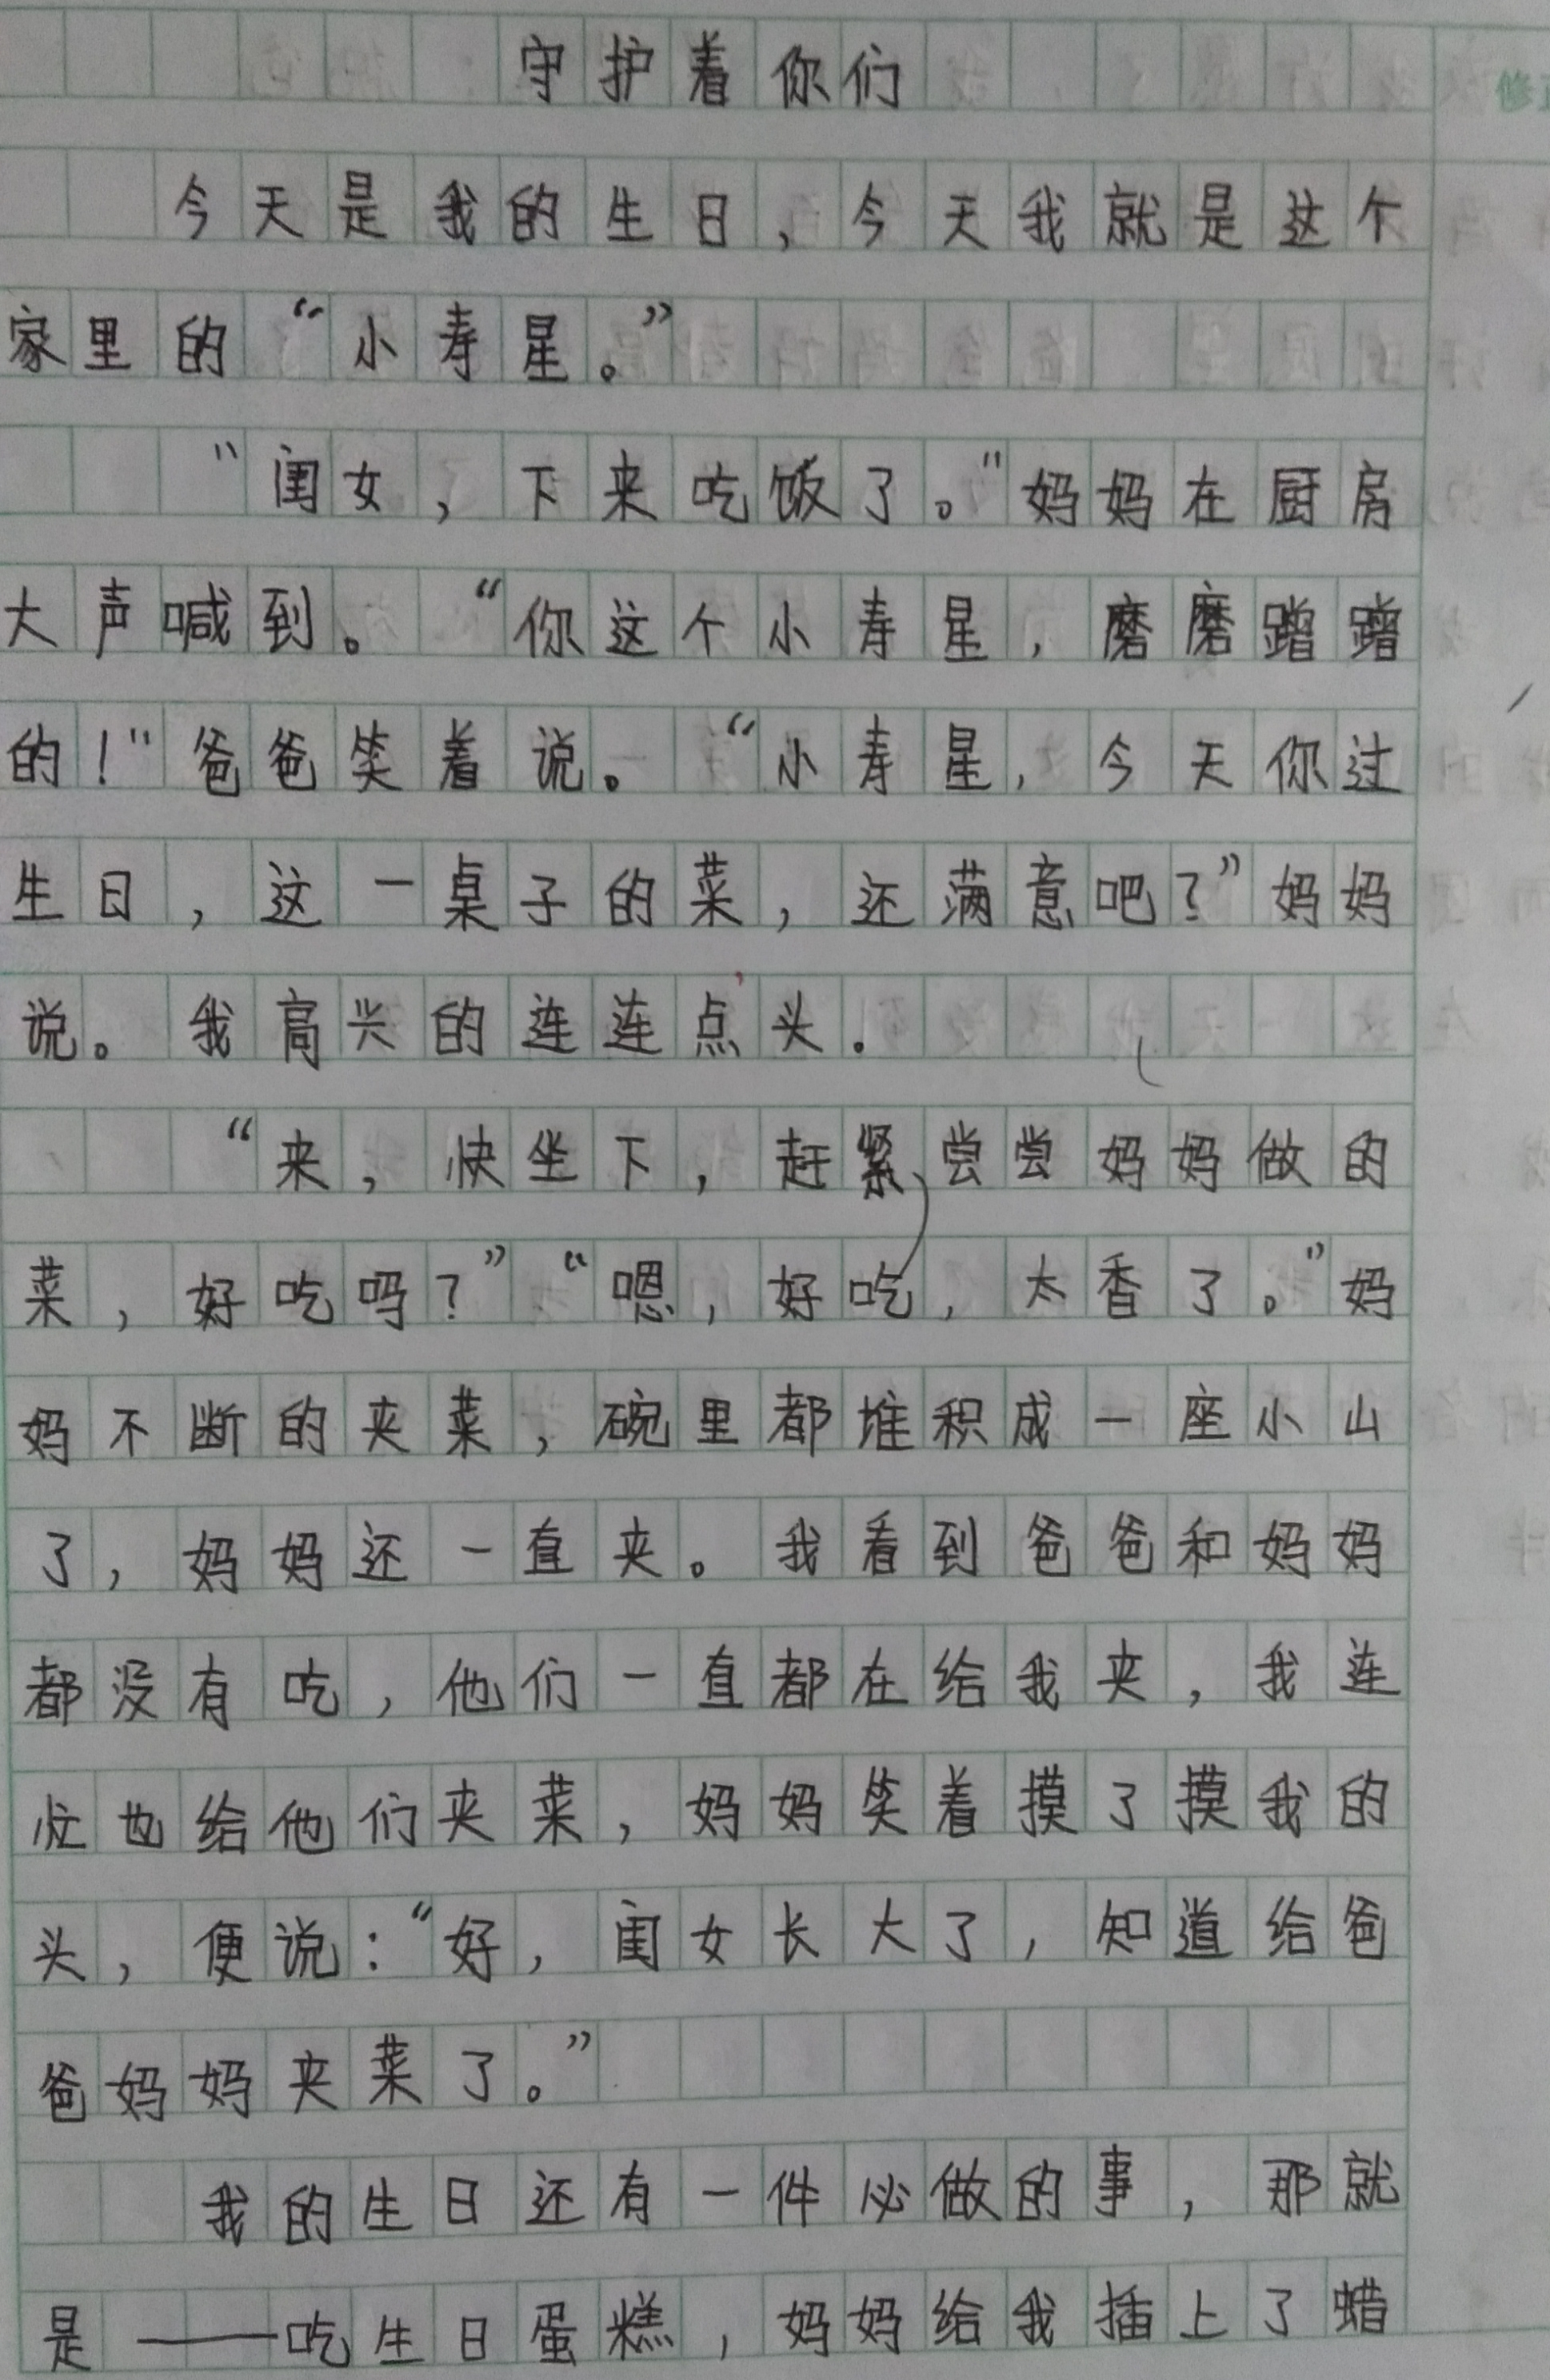 守护着你们
今天是我的生日，今天我就是这个
家里的“小寿星。”
“闺女，下来吃饭了。”妈妈在厨房
大声喊到。“你这个小寿星，磨磨蹭蹭
的！”爸爸笑着说。“小寿星，今天你过
生日，这一桌子的菜，还满意吧？”妈妈
说。我高兴的连连点头.
“来，快坐下，赶紧尝尝妈妈做的
菜，好吃吗？”“嗯，好吃，太香了。”妈
妈不断的夹菜，碗里都堆积成一座小山
了，妈妈还一直夹。我看到爸爸和妈妈
都没有吃，他们一直都在给我夹，我连
忙也给他们夹菜，妈妈笑着摸了摸我的
头，便说：“好，闺女长大了，知道给爸
爸妈妈夹菜了。”
我的生日还有一件必做的事，那就
是——吃生日蛋糕，妈妈给我插上了蜡
修正